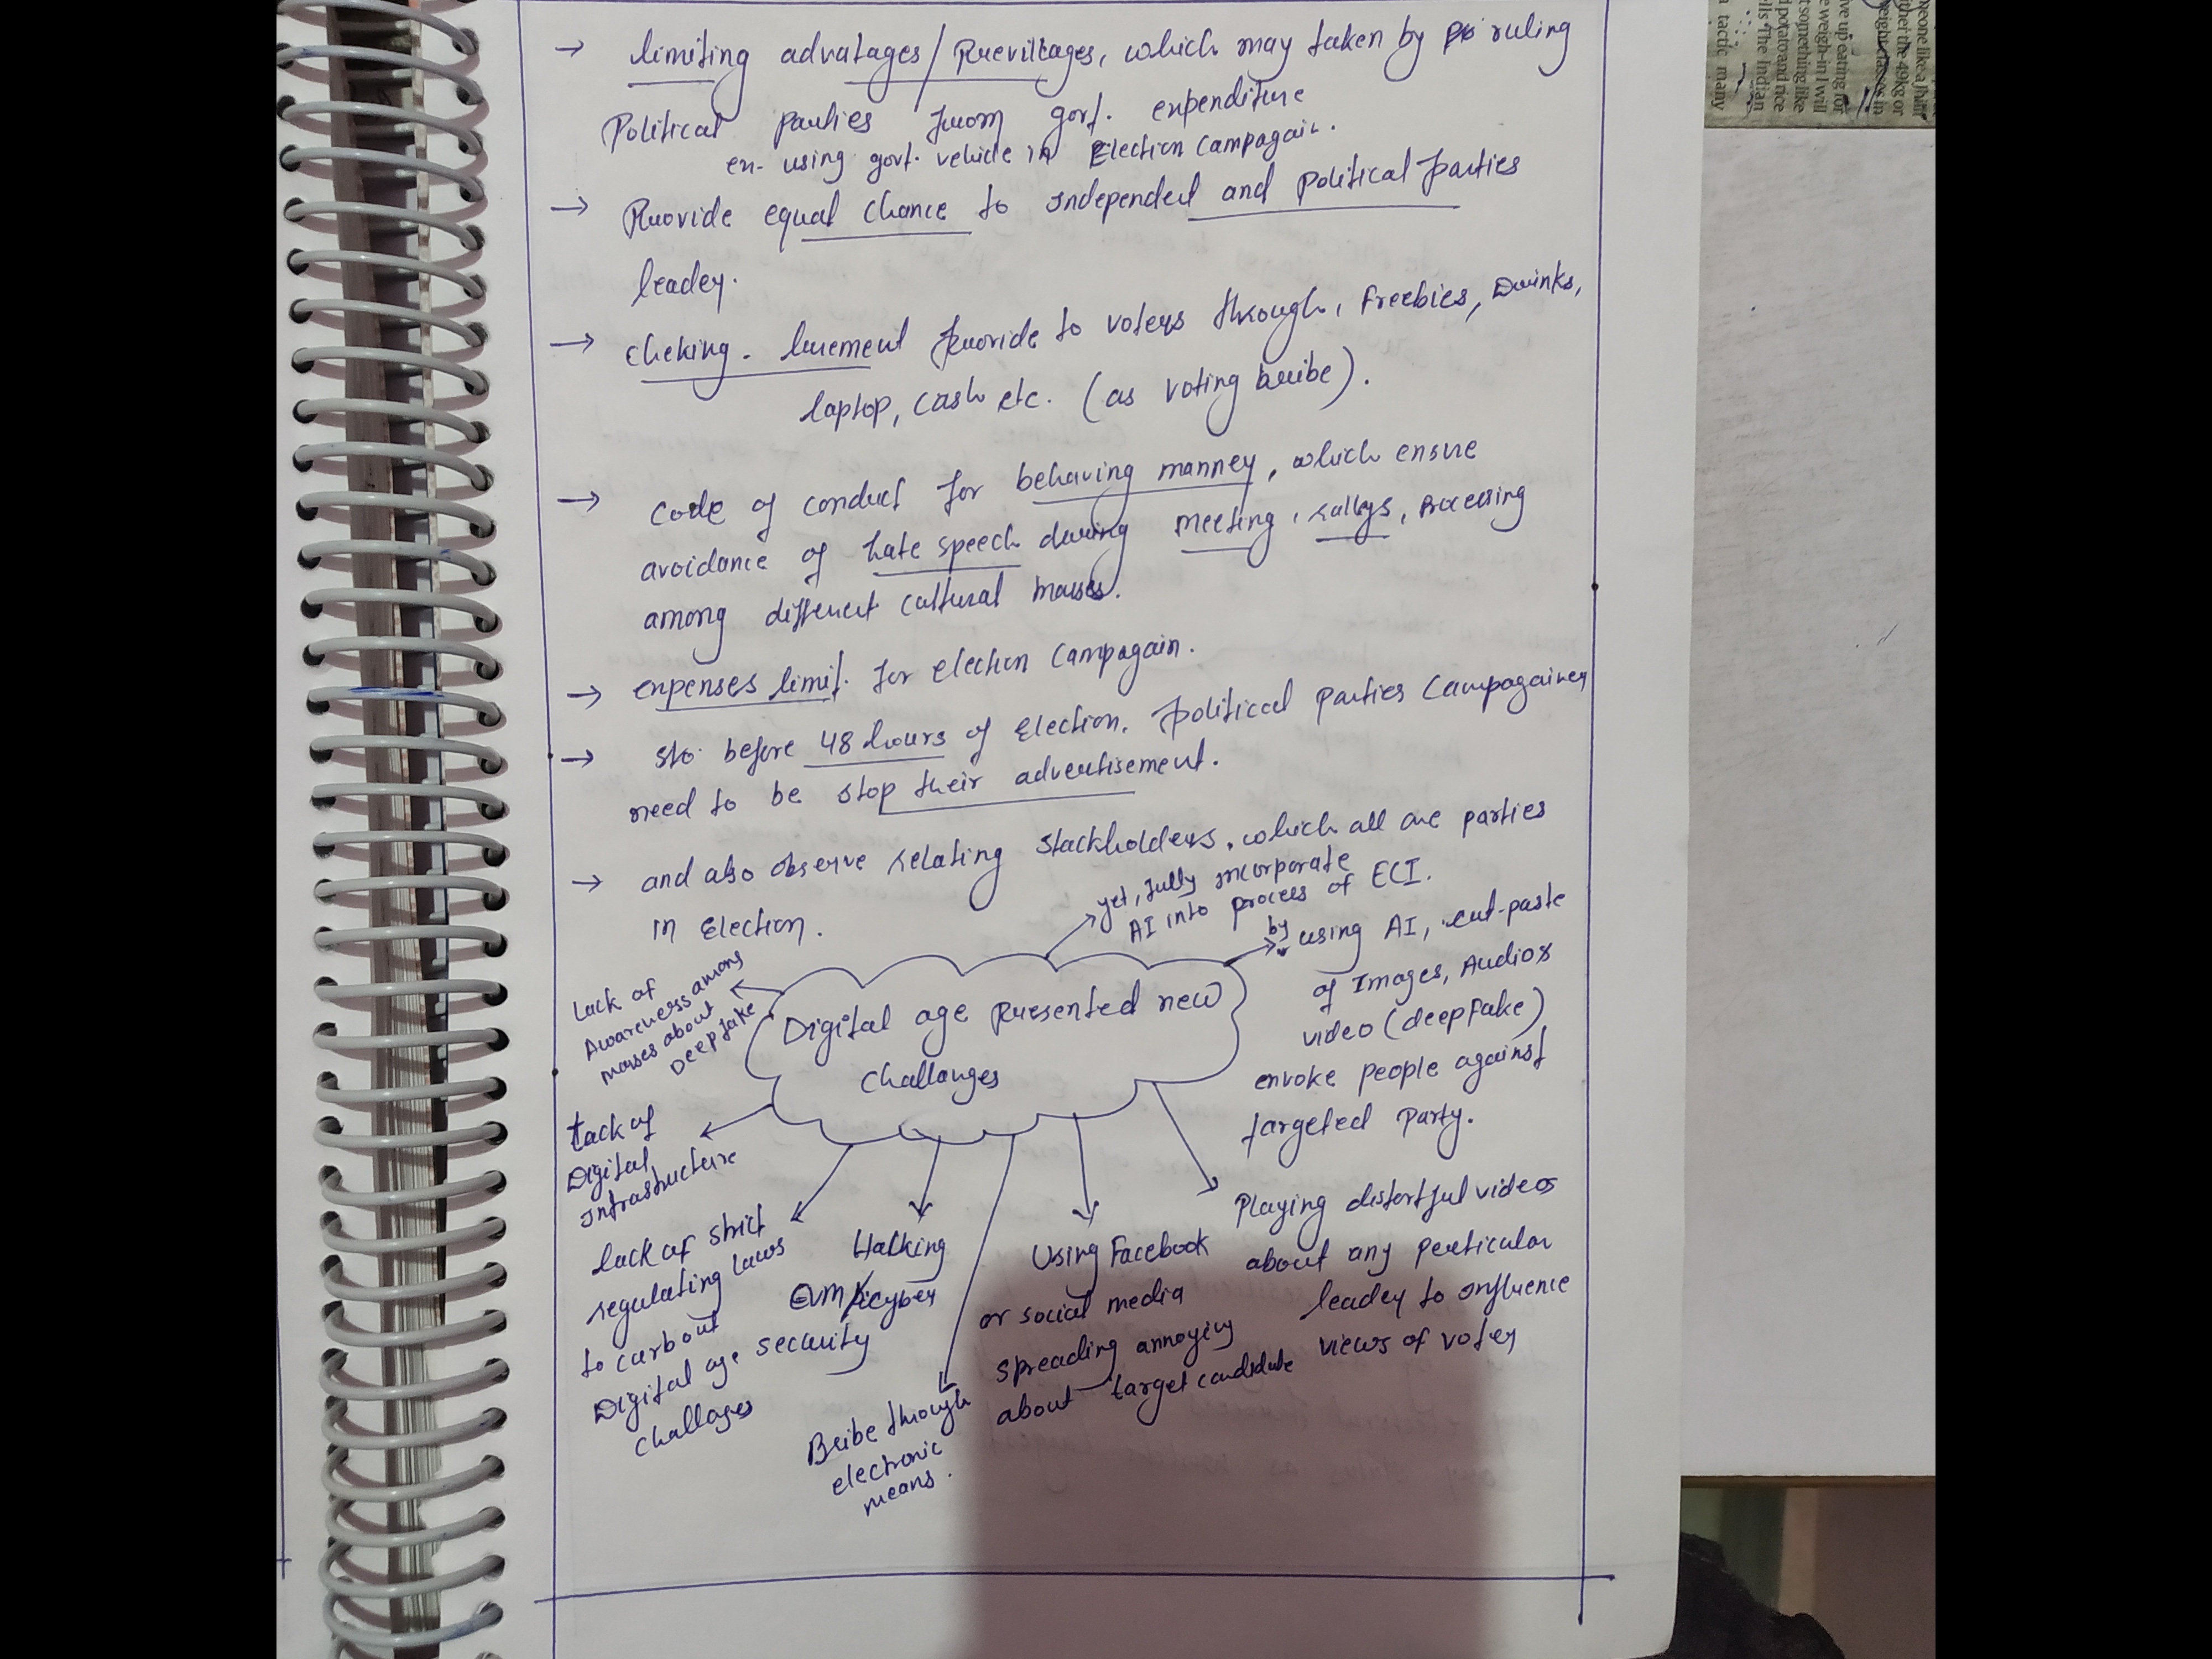 → limiting advatages/Previllages, which may taken by ruling
Political parties from govt. expenditure
ex- using govt. vehicle in Election Campagain.
→ Provide equal chance to Independent and political parties
leader.
→ cheking. lurement provide to voters through, freebies, Drinks,
laptop, cash etc. (as voting bribe).
→ code of conduct for behaving manner, which ensure
avoidance of hate speech during meeting, rallys, Processing
among different cultural masses.
→ expenses limit. for election Campagain.
→ before 48 hours of Election. political parties Campagainer
need to be stop their advertisement.
→ and also observe relating stackholders, which all are parties
in Election.
→ yet, fully incorporate
AI into process of ECI.
→ by using AI, cut-paste
of Images, Audios
video (deepfake)
envoke people against
targeted party.
Lack of
Awareness among
masses about
Deepfake
Digital age Presented new
challanges
Lack of
Digital
Infrastructure
lack of strict
regulating laws
to curbout
Digital age
challages
Hacking
EVM/cyber
security
Bribe through
electronic
means.
Using Facebook
or social media
spreading annoying
about target candidate
Playing distortful videos
about any perticular
leader to Influence
views of voter
meone like a
either the 49kg or
weight classes in
ve up eating for
e weigh-in I will
t something like
d potato and rice
lls The Indian
a tactic many